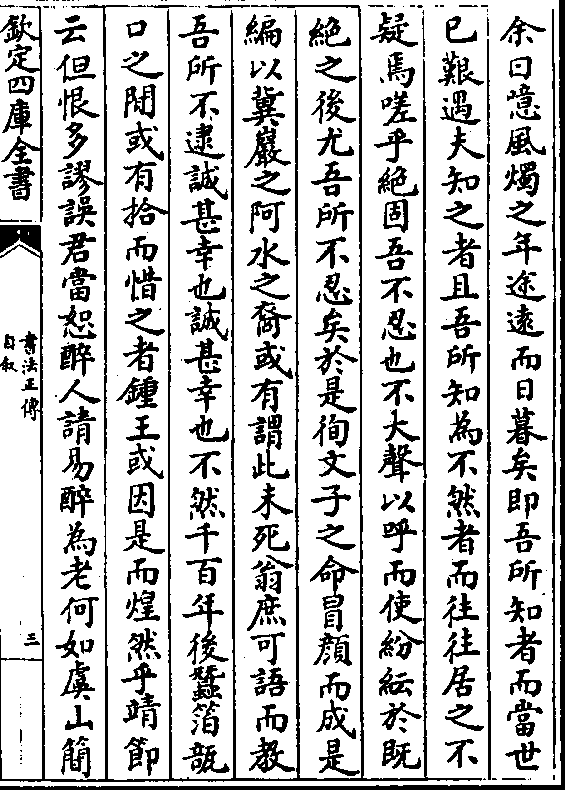 余曰噫風燭之年途遠而日暮矣即吾所知者而當世
已艱遇夫知之者且吾所知為不然者而往往居之不
疑焉嗟乎絶固吾不忍也不大聲以呼而使紛紜於既
絶之後尤吾所不忍矣於是徇文子之命冒顔而成是
編以冀巖之阿水之裔或有謂此未死翁庶可語而教
吾所不逮誠甚幸也誠甚幸也不然千百年後蠶箔瓿
口之間或有拾而惜之者鍾王或因是而煌然乎靖節
云但恨多謬誤君當恕醉人請易醉為老何如虞山簡
欽定四庫全書
書法正傳
自叙
三